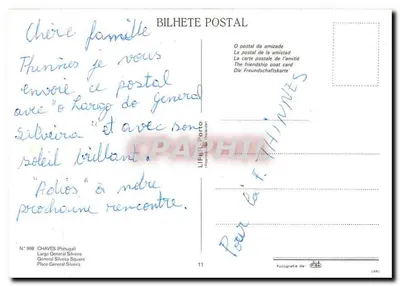 BILHETE POSTAL
Chère famille
Thinnes je vous
envoie ce postal
avec "o Largo do General
Silveira" et avec son
soleil brillant.
"Adiós" à notre
prochaine rencontre.
O postal da amizade
La postal de la amistad
La carte postale de l'amitié
The friendship post card
Die Freundschaftskarte
Pour la F. THINNES
N.º 988 CHAVES (Portugal)
Largo General Silveira
General Silveira Square
Place General Silveira
11
LIFER - Porto
Fotografia de: